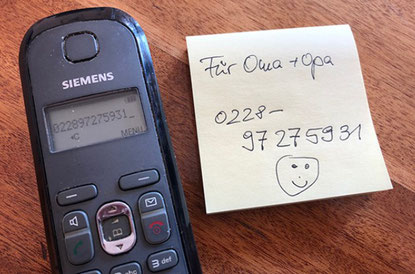 SIEMENS
022897275931_
MENU
abc
3 def
Für Oma + Opa
0228-
97275931